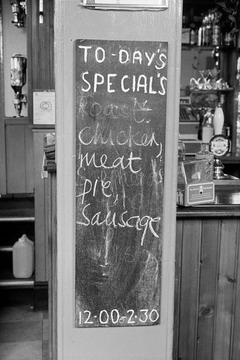 TO-DAY'S
SPECIAL'S
Roast
Chicken,
meat
pie,
Sausage
12-00-2-30